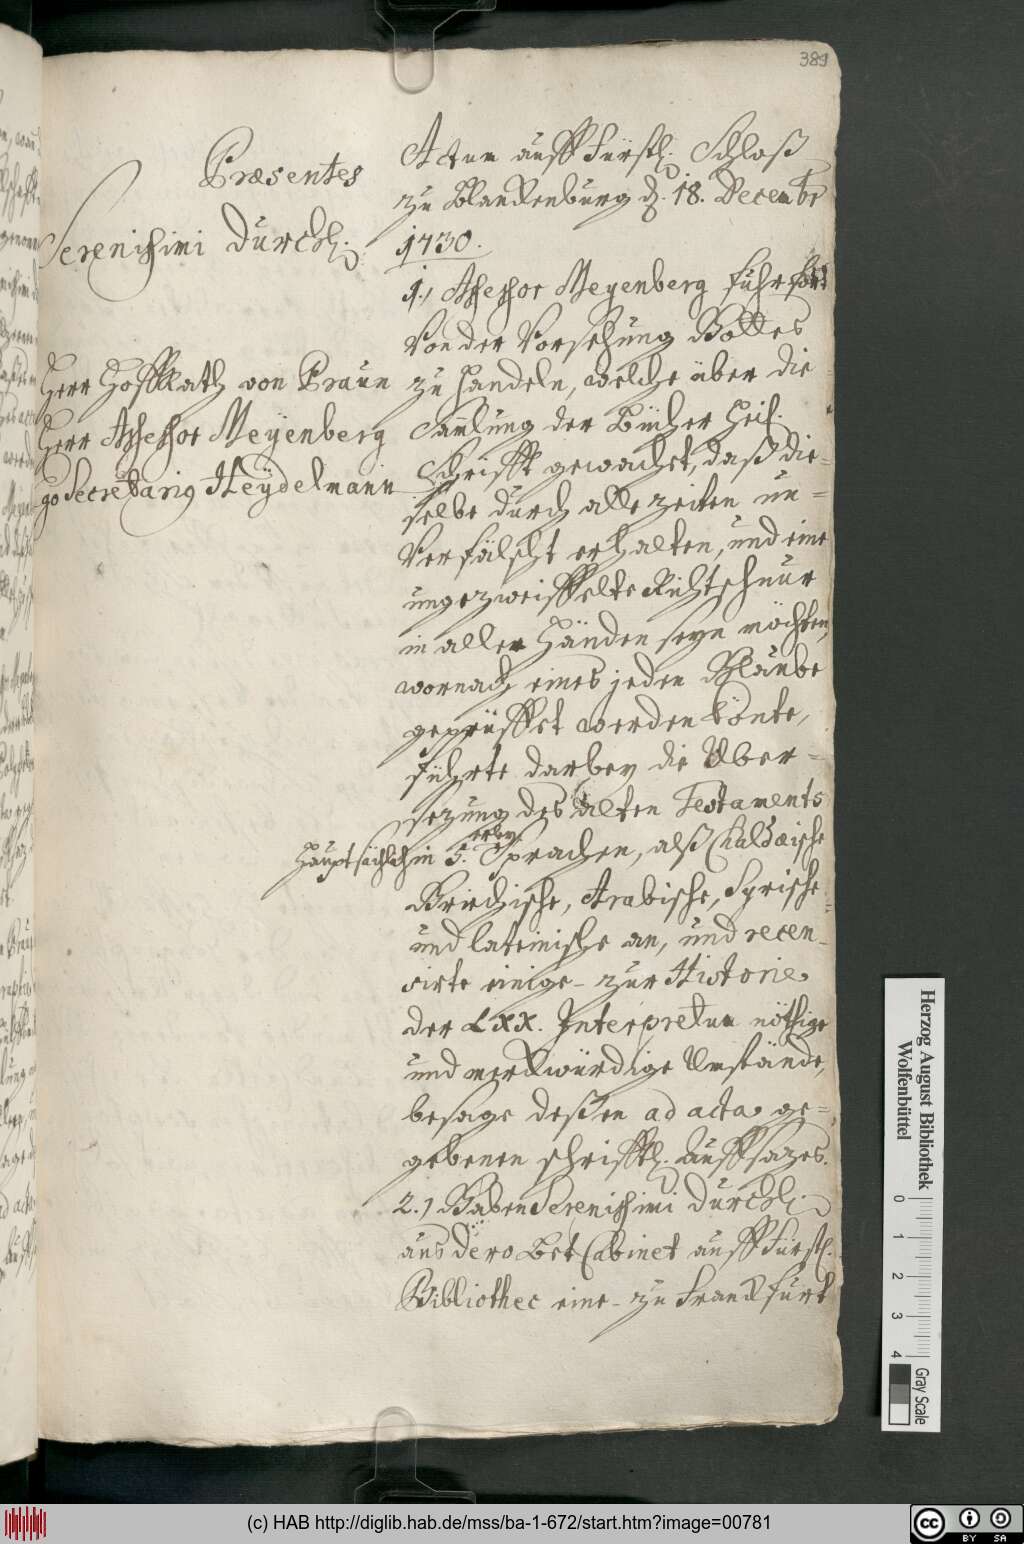 389
Præsentes
Serenissimi Durchl.
Herr HoffRath von Praun
Herr Assessor Meyenberg
Secretarius Heydelmann
Actum auff Fürstl. Schloß
zu Blanckenburg d. 18. Decembr
1730.
1.) Assessor Meyenberg fuhr fort
von der Vorsehung Gottes
zu handeln, welche über die
Samlung der Bücher Heil.
Schrifft gewachet, daß die-
selbe durch alle zeiten un-
verfälscht erhalten, und eine
ungezweiffelte Richtschnur
in aller Händen seyn möchten,
wornach eines jeden Glaube
geprüffet werden könte,
führte darbey die Uber-
sezung des alten Testaments
hauptsächlich in 5. Sprachen, alß Chaldæische
Griechische, Arabische, Syrische
und lateinische an, und recen-
sirte einige- zur Historie
der LXX. Interpretum nöthige
und merckwürdige Umstände,
besage deßen ad acta ge-
gebenen schrifftl. Auffsazes.
2.) Gaben Serenissimi Durchl.
aus Dero Bet Cabinet auff Fürstl.
Bibliothec eine- zu Franckfurt
Herzog August Bibliothek
Wolfenbüttel
0
1
2
3
4
Gray Scale
(c) HAB http://diglib.hab.de/mss/ba-1-672/start.htm?image=00781
cc
BY SA